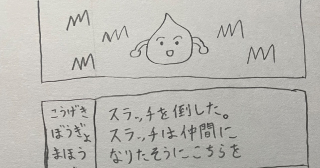 こうげき
ぼうぎょ
まほう
スラッチを倒した。
スラッチは仲間に
なりたそうにこちらを